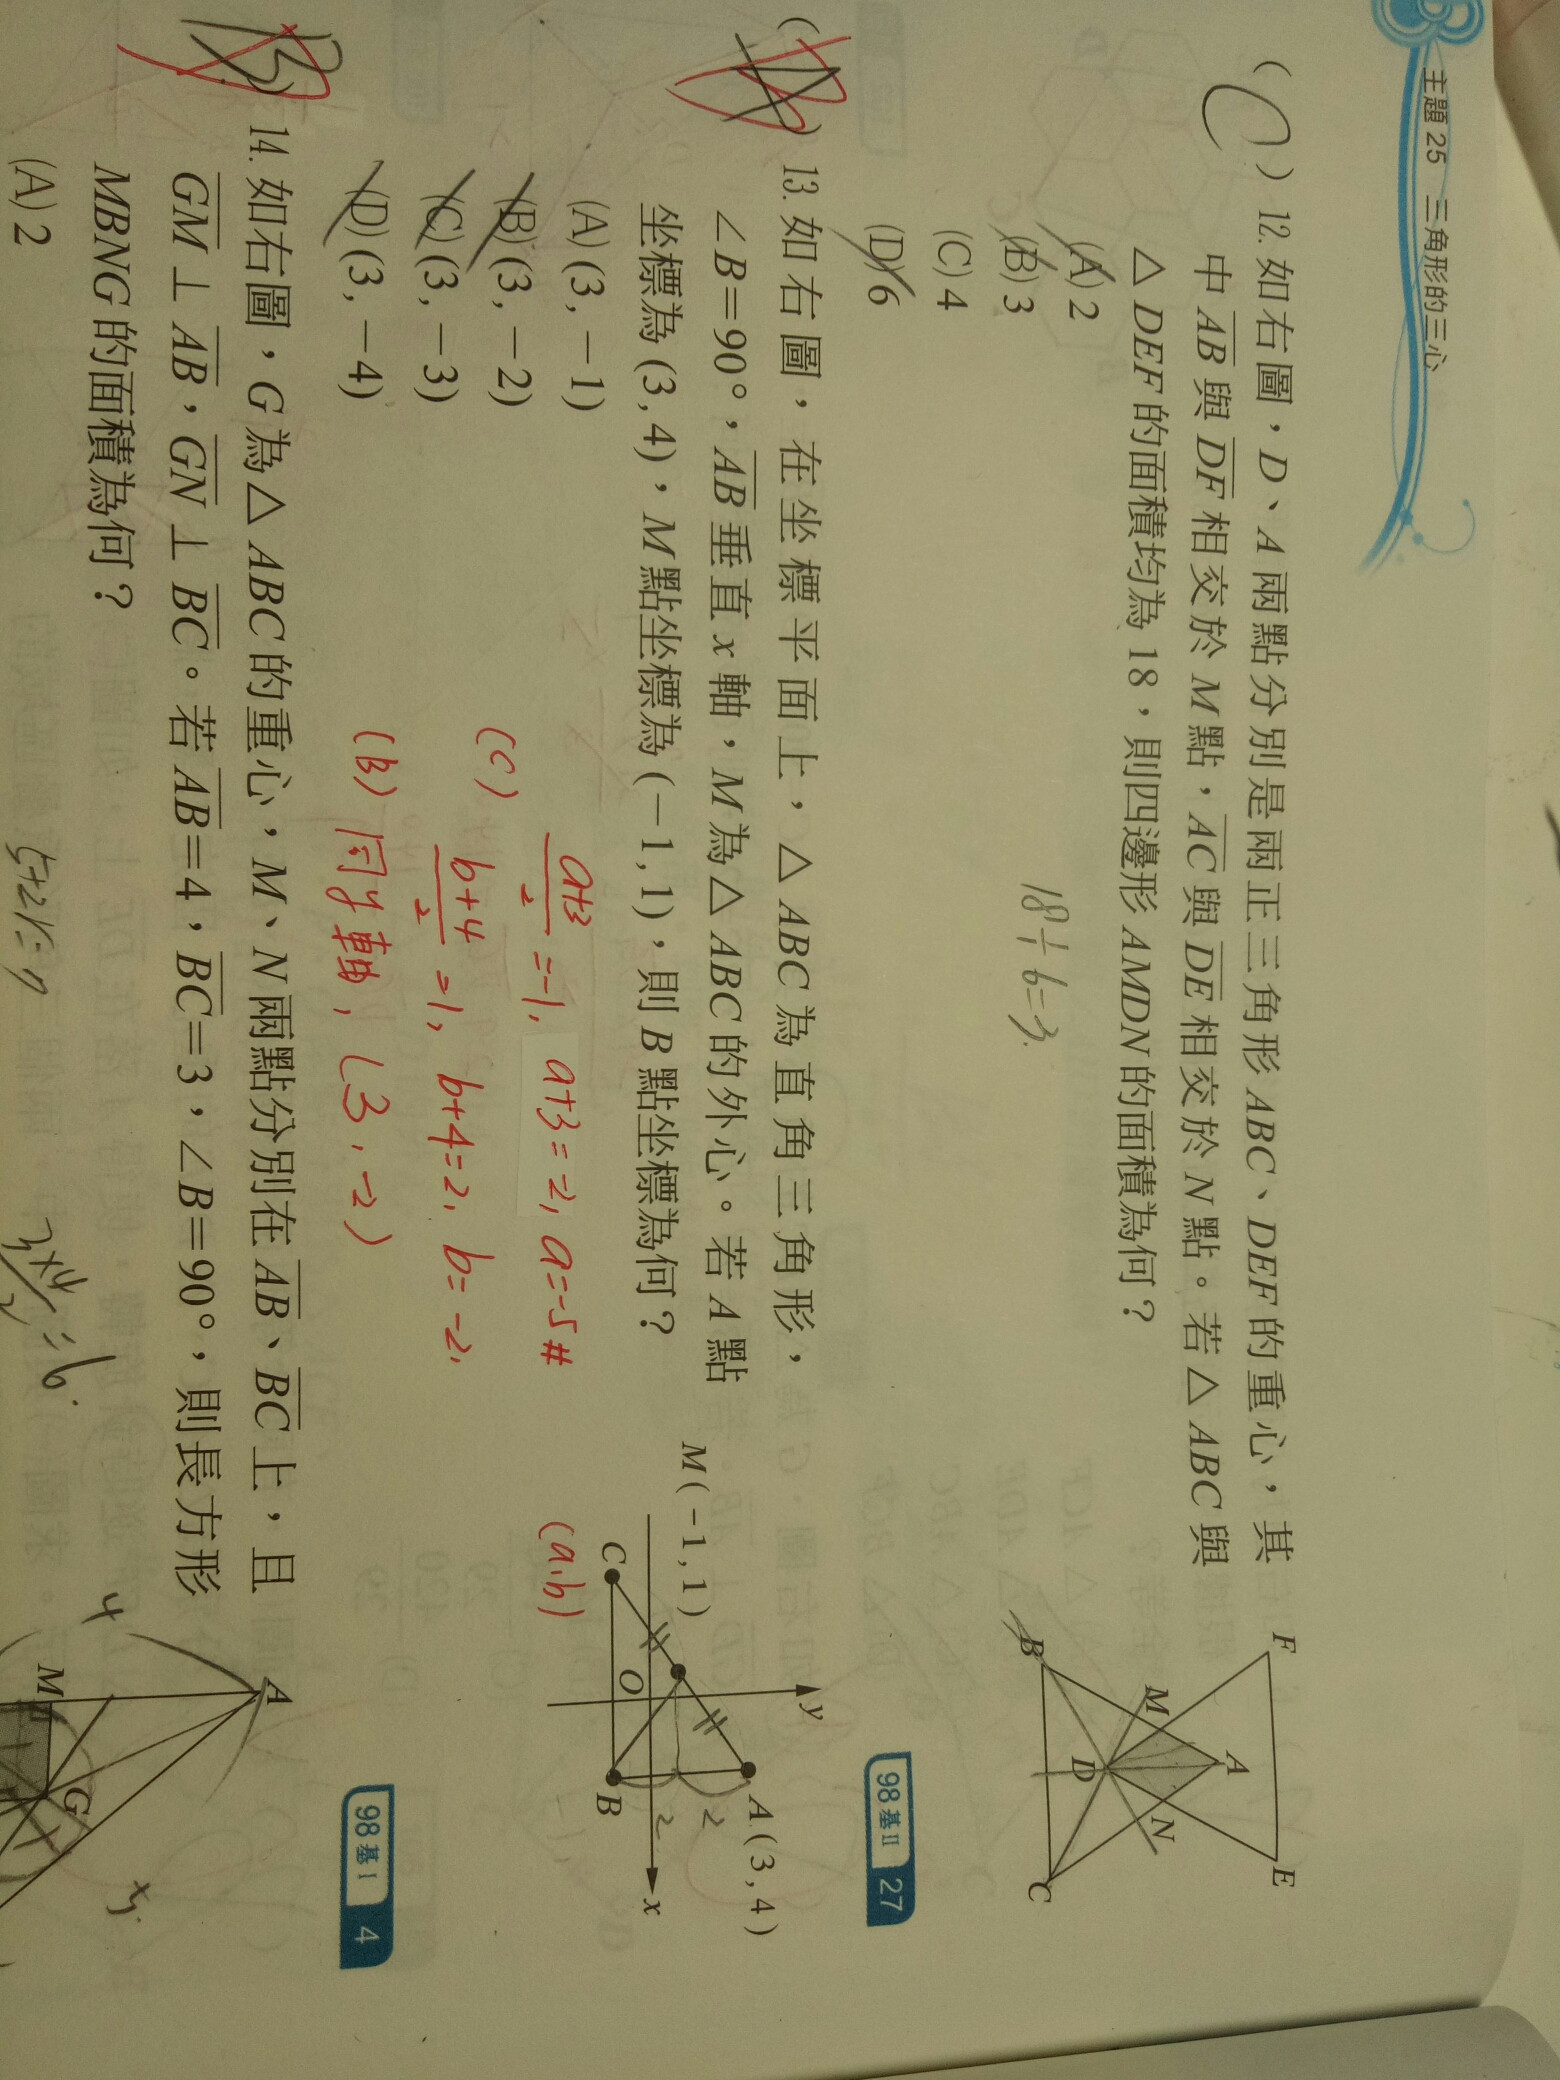 主題 25 三角形的三心
( C ) 12. 如右圖，D、A 兩點分別是兩正三角形 ABC、DEF 的重心，其
中 AB 與 DF 相交於 M 點，AC 與 DE 相交於 N 點。若 △ ABC 與
△ DEF 的面積均為 18，則四邊形 AMDN 的面積為何？
(A) 2
(B) 3
(C) 4
(D) 6
18÷6=3.
F
E
A
M
N
D
B
C
98 基 II 27
( B ) 13. 如右圖，在坐標平面上，△ ABC 為直角三角形，
∠B＝90°，AB 垂直 x 軸，M 為 △ ABC 的外心。若 A 點
坐標為 (3 , 4)，M 點坐標為 (－1 , 1)，則 B 點坐標為何？
(A) (3 , －1)
(B) (3 , －2)
(C) (3 , －3)
(D) (3 , －4)
(C) a+3/2 =-1, a+3=-2, a=-5#
b+4/2 =1, b+4=2, b=-2,
(B) 同y軸, (3,-2)
y
A (3 , 4)
M (－1 , 1)
2
2
x
O
C
B
(a,b)
98 基 I 4
( B ) 14. 如右圖，G 為 △ ABC 的重心，M、N 兩點分別在 AB、BC 上，且
GM ⊥ AB，GN ⊥ BC。若 AB＝4，BC＝3，∠B＝90°，則長方形
MBNG 的面積為何？
(A) 2
3×4/2 =6.
A
4
M
G